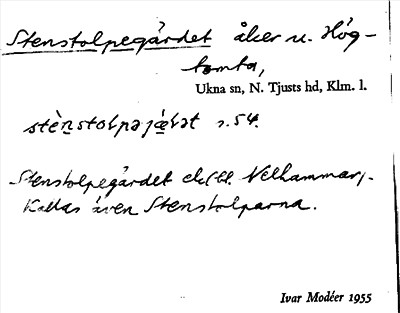 Stenstolpegärdet åker u. Hög-
tomta,
Ukna sn, N. Tjusts hd, Klm. l.
stènstoɫpəjǽɽət s. 54.
Stenstolpegärdet ek. bl. Nelhammarj.
Kallas även Stenstolparna.
Ivar Modéer 1955